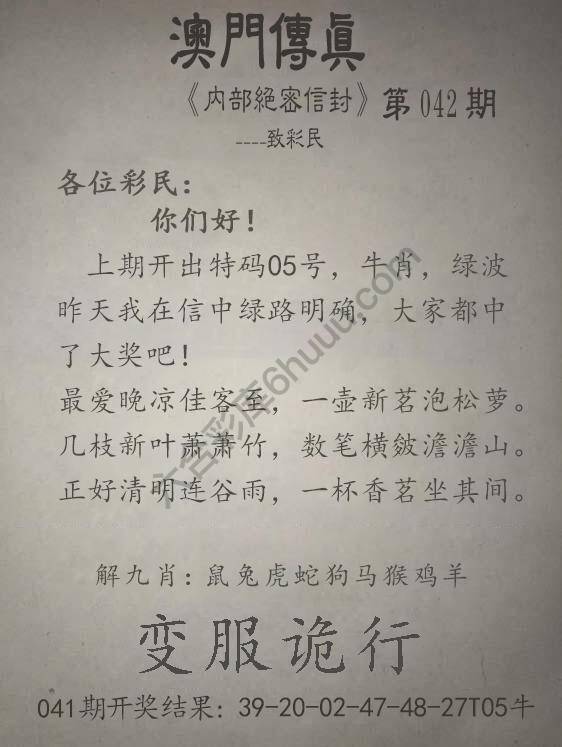 澳門傳眞
《内部絕密信封》第042期
----致彩民
各位彩民：
你们好！
上期开出特码05号，牛肖，绿波
昨天我在信中绿路明确，大家都中
了大奖吧！
最爱晚凉佳客至，一壶新茗泡松萝。
几枝新叶萧萧竹，数笔横皴澹澹山。
正好清明连谷雨，一杯香茗坐其间。
解九肖：鼠兔虎蛇狗马猴鸡羊
变服诡行
041期开奖结果：39-20-02-47-48-27T05牛
六合彩库6huuu.com